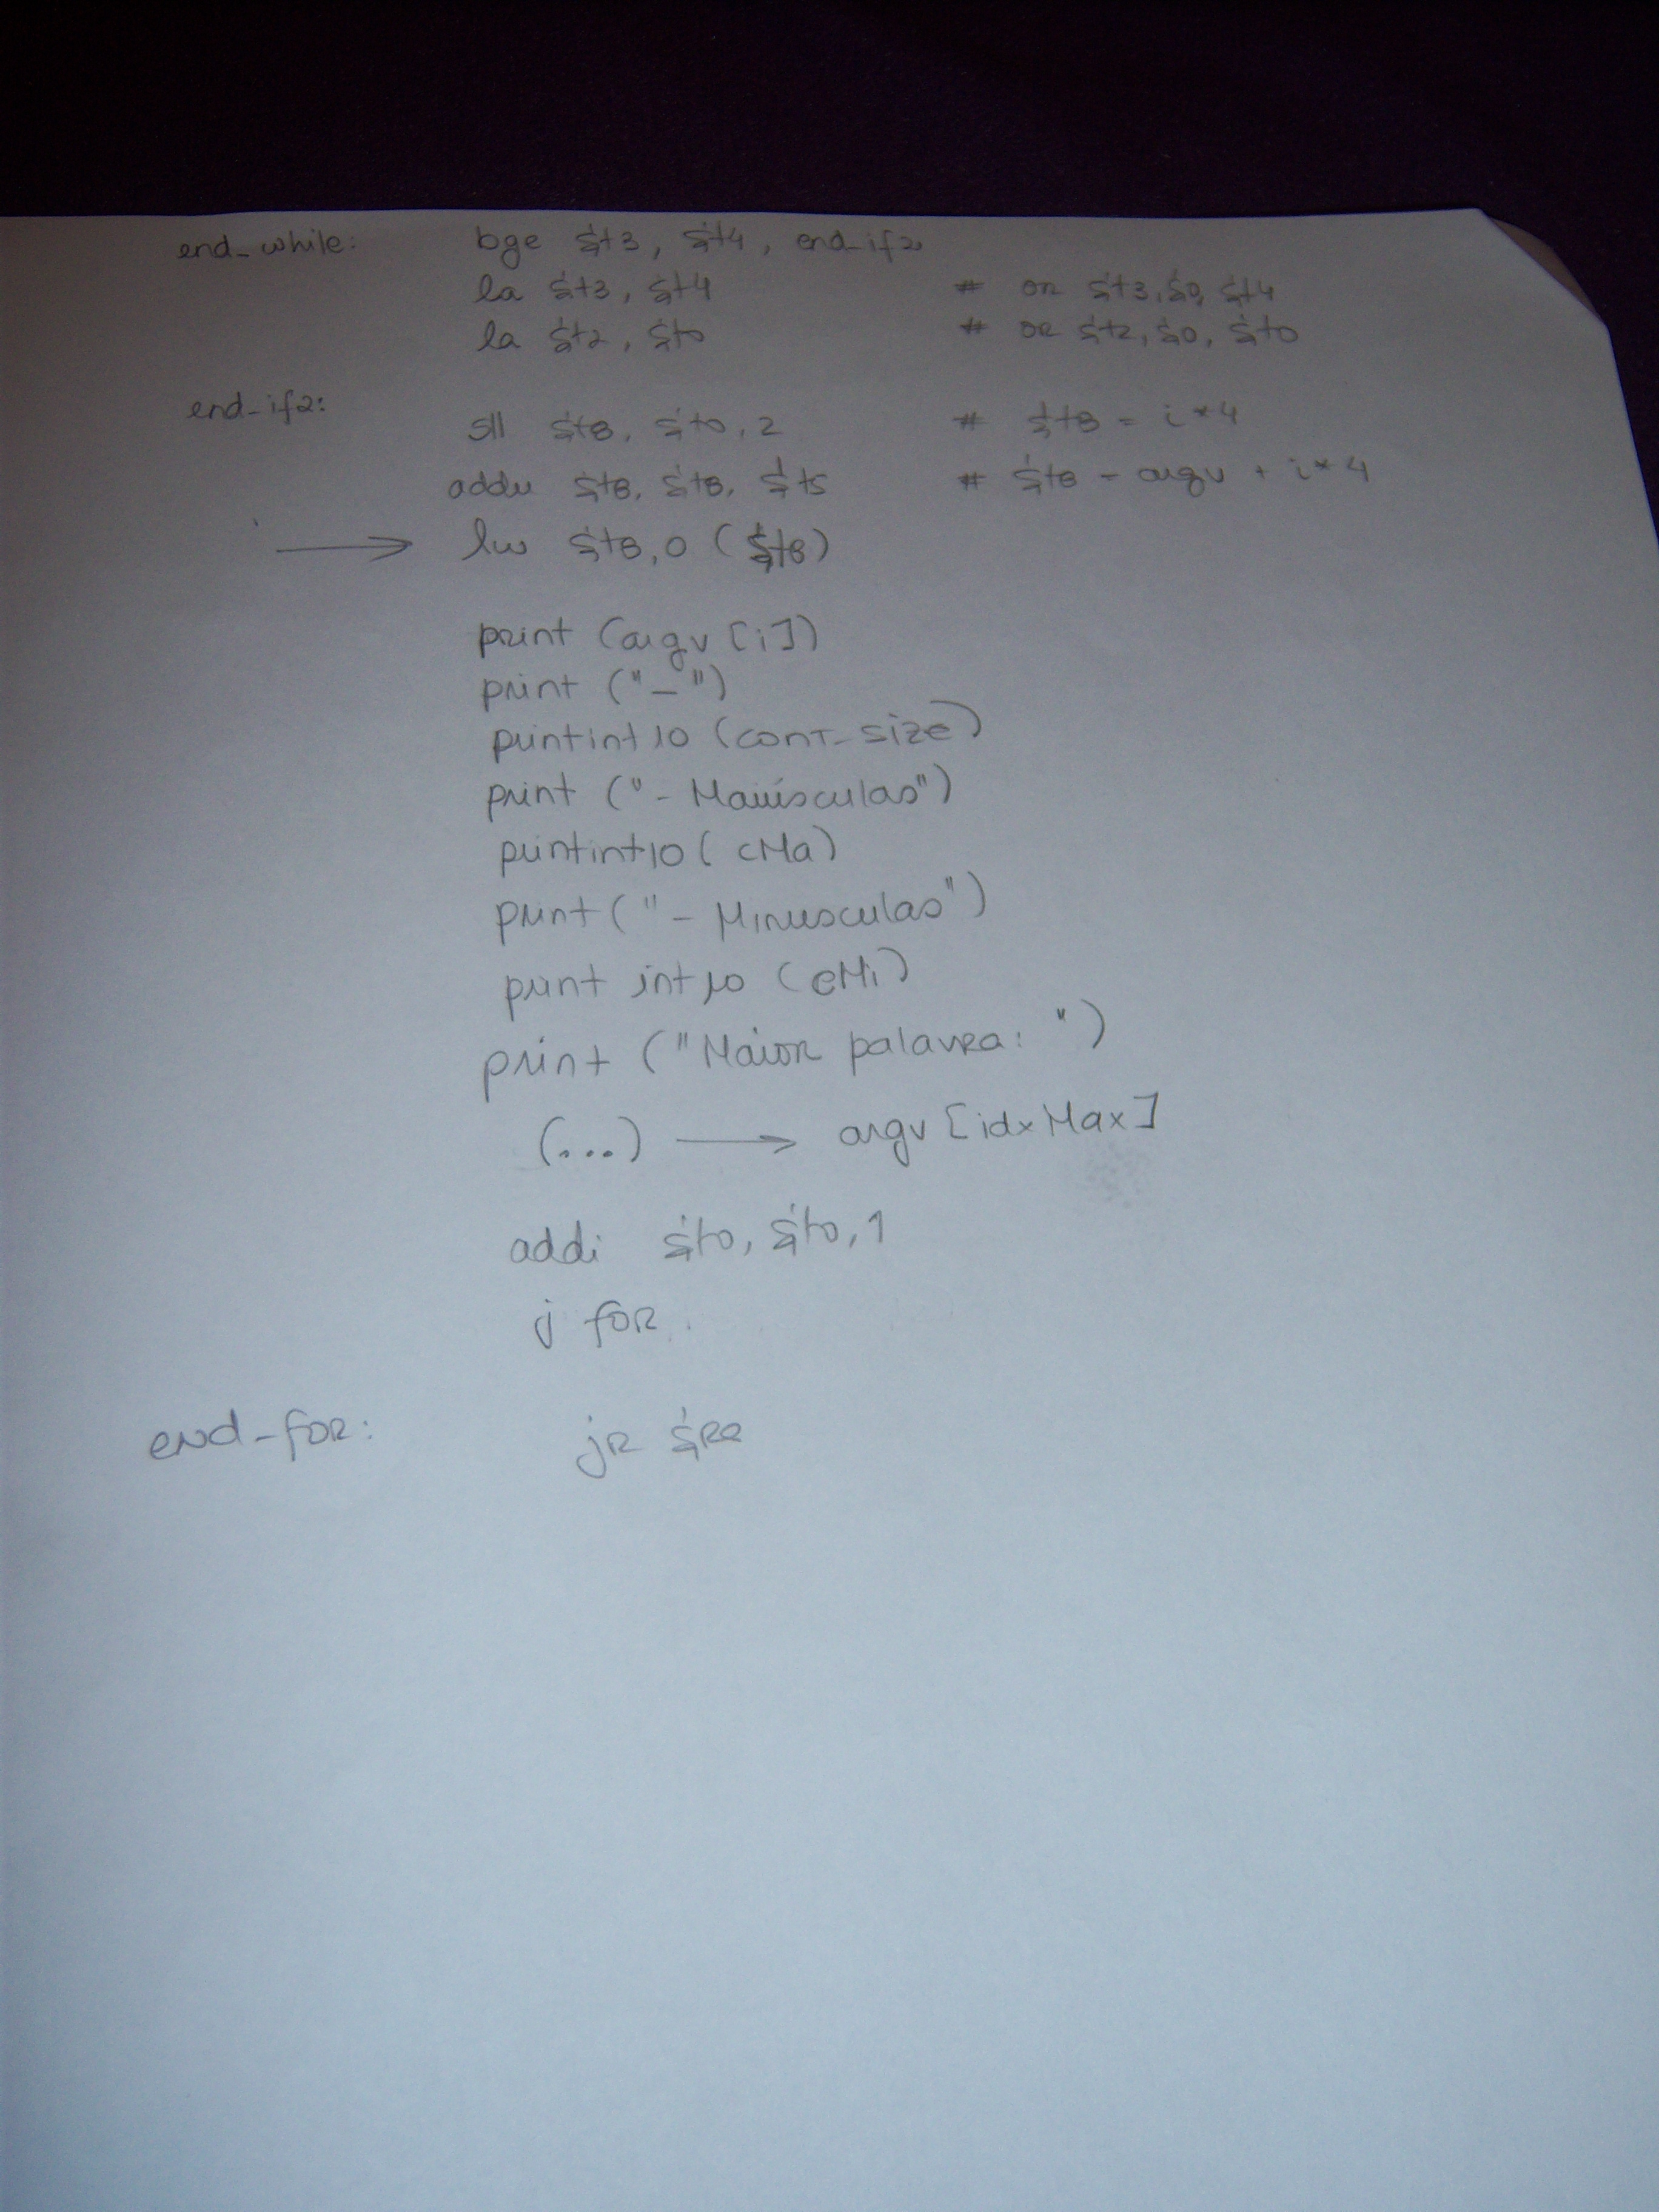 end_while: bge $t3, $t4, end_if2
la $t3, $t4 # or $t3,$0, $t4
la $t2, $t0 # or $t2, $0, $t0
end_if2:
sll $t8, $t0, 2 # $t8 = i*4
addu $t8, $t8, $t5 # $t8 = argv + i*4
→ lw $t8, 0 ($t8)
print (argv [i])
print ("_")
printint10 (cont_size)
print ("- Maiúsculas")
printint10 ( cMa)
print ("- Minusculas")
print int10 (cMi)
print ("Maior palavra: ")
(...) → argv [idxMax]
addi $t0, $t0, 1
j for
end_for: jr $ra